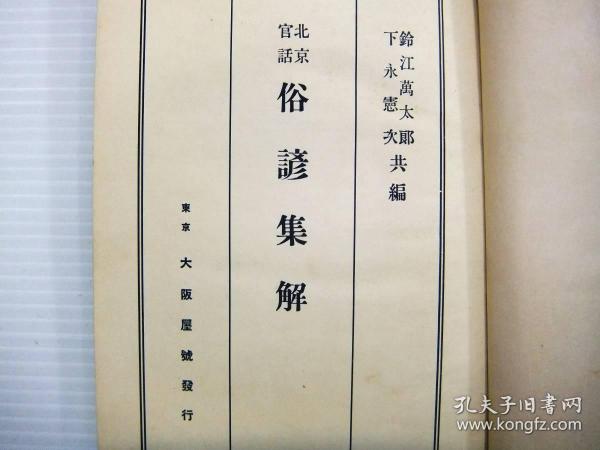 鈴江萬太郎
下永憲次
共編
北京
官話
俗諺集解
東京 大阪屋號發行
孔夫子旧书网
www.kongfz.com